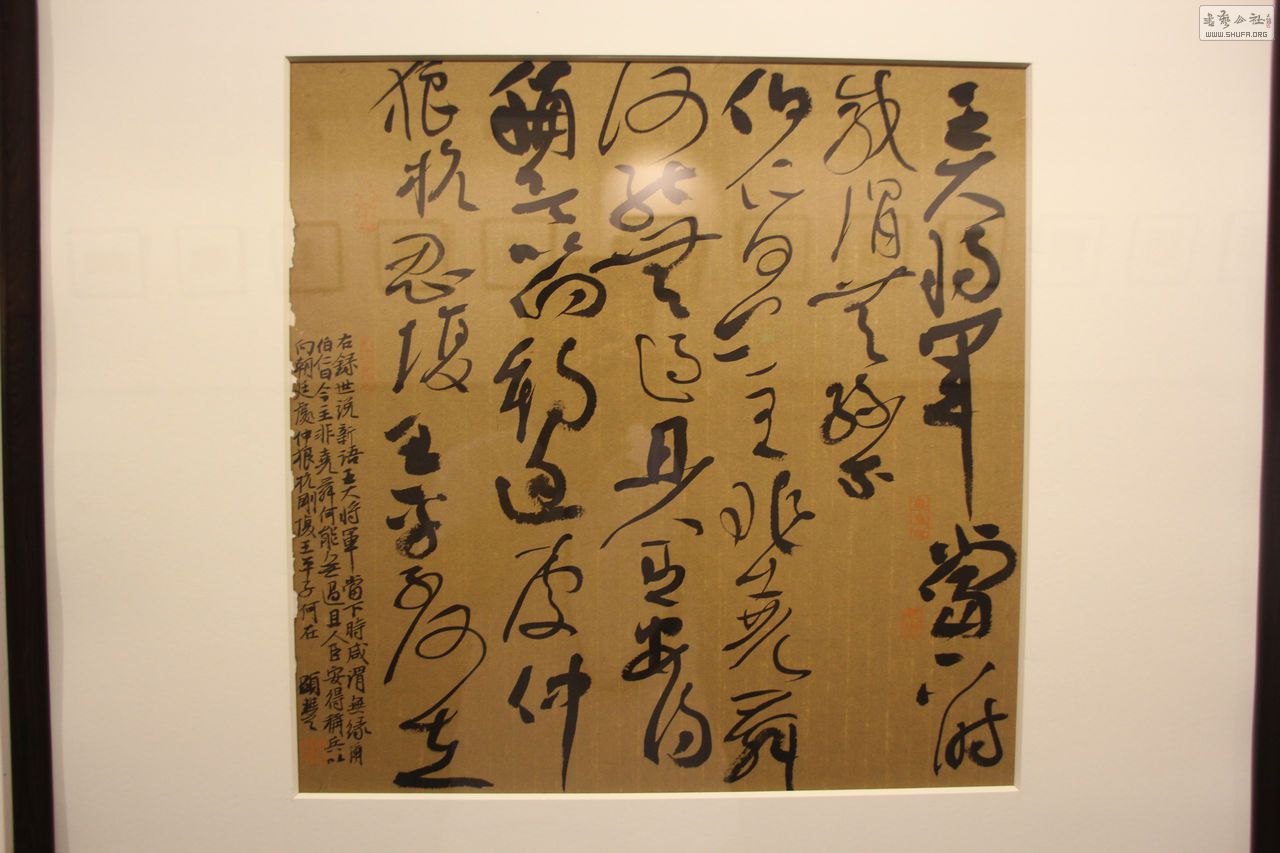 王大將軍當下時
咸謂無緣爾
伯仁曰今主非堯舜
何能無過且人臣安得
稱兵以向朝廷處仲
狼抗剛愎王平子何在
右録世说新语王大将軍當下時咸謂無緣爾
伯仁曰今主非堯舜何能無過且人臣安得稱兵以
向朝廷處仲狼抗剛愎王平子何在
書藝公社
WWW.SHUFA.ORG